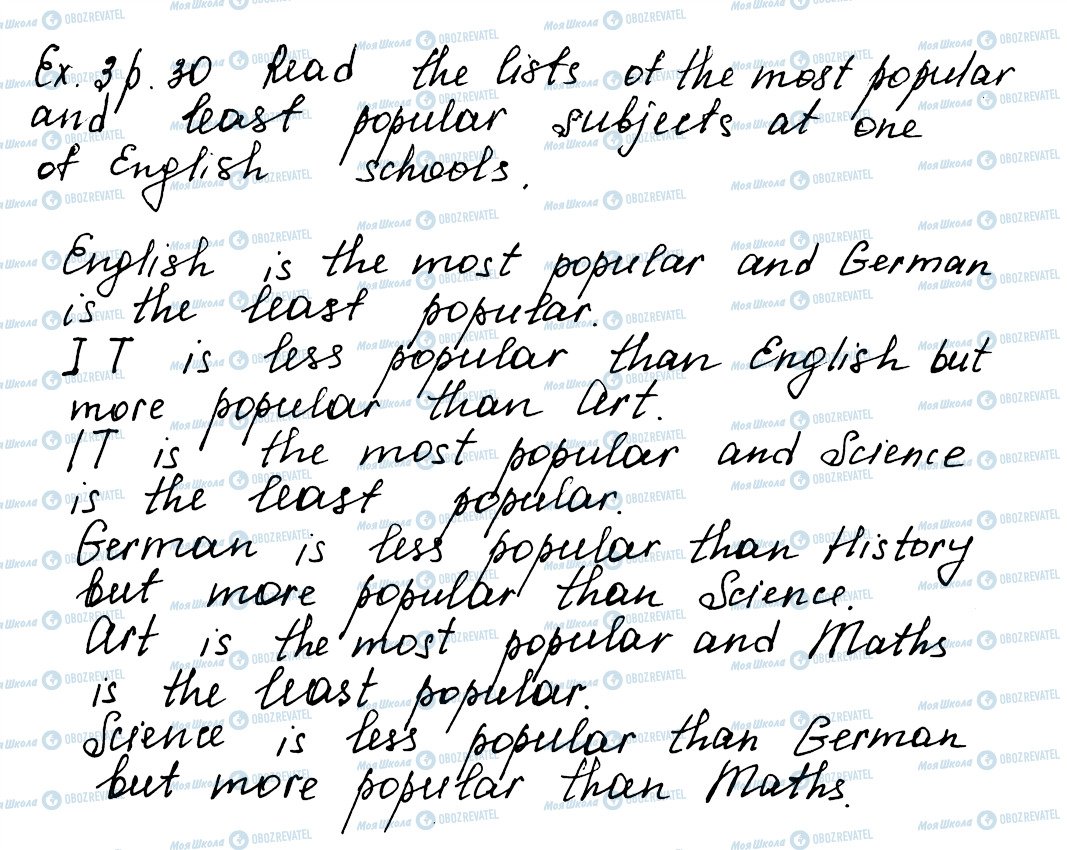 Ex. 3 p. 30 Read the lists of the most popular
and least popular subjects at one
of English schools.
English is the most popular and German
is the least popular.
IT is less popular than English but
more popular than Art.
IT is the most popular and Science
is the least popular.
German is less popular than History
but more popular than Science.
Art is the most popular and Maths
is the least popular.
Science is less popular than German
but more popular than Maths.
Моя Школа OBOZREVATEL